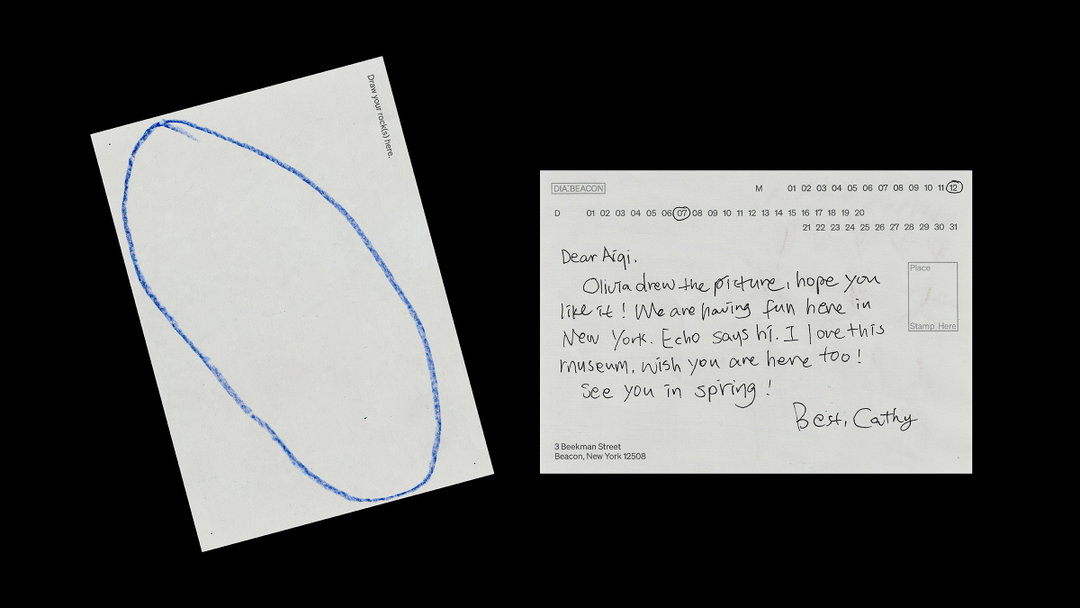 Draw your rock(s) here.
DIA:BEACON
M 01 02 03 04 05 06 07 08 09 10 11 12
D 01 02 03 04 05 06 07 08 09 10 11 12 13 14 15 16 17 18 19 20
21 22 23 24 25 26 27 28 29 30 31
Dear Aiqi,
Olivia drew the picture, hope you
like it! We are having fun here in
New York. Echo says hi. I love this
museum, wish you are here too!
See you in spring!
Best, Cathy
Place
Stamp Here
3 Beekman Street
Beacon, New York 12508